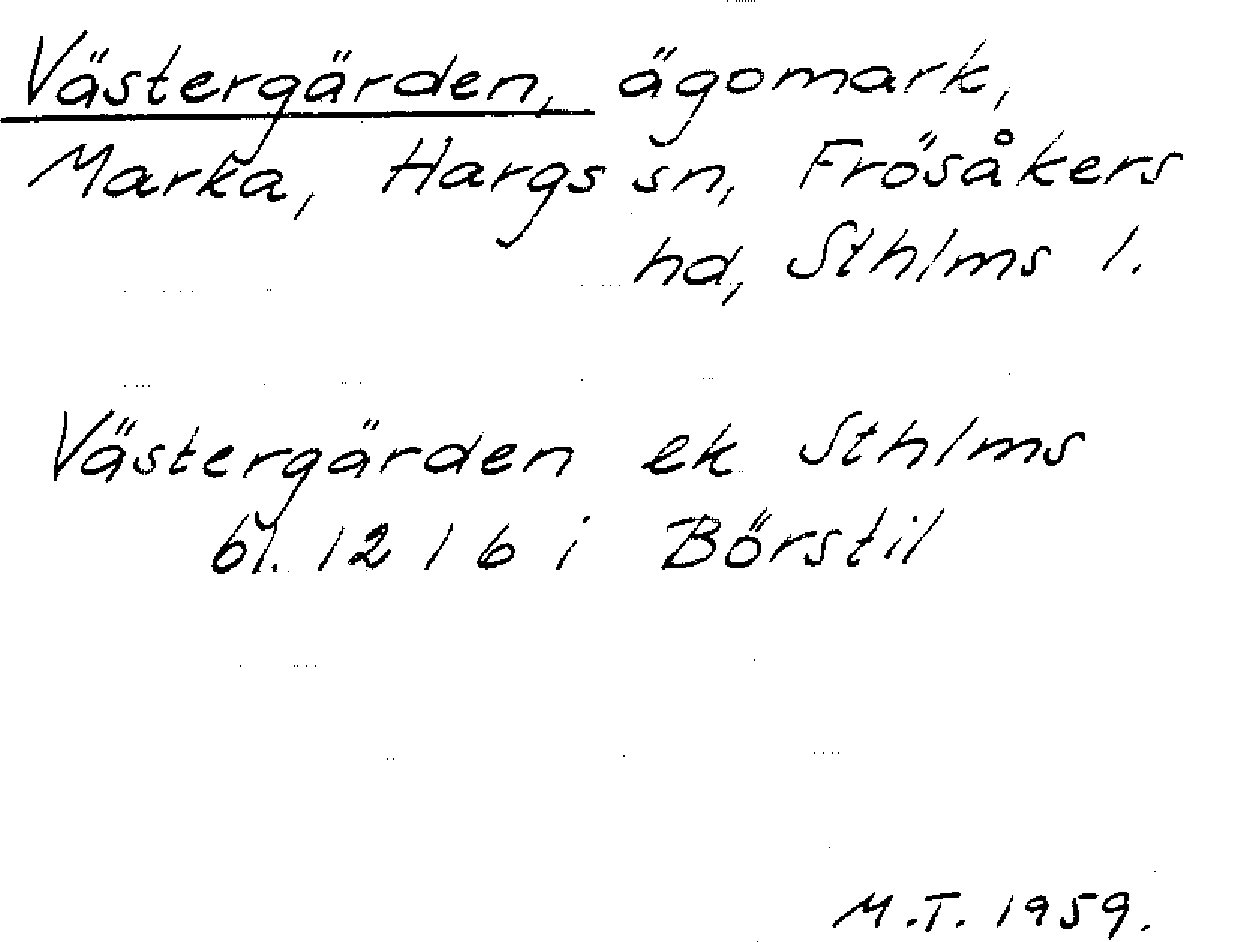 Västergärden, ägomark,
Marka, Hargs sn, Frösåkers
hd, Sthlms l.
Västergärden ek Sthlms
bl. 12 1 6 i Börstil
M.T. 1959.